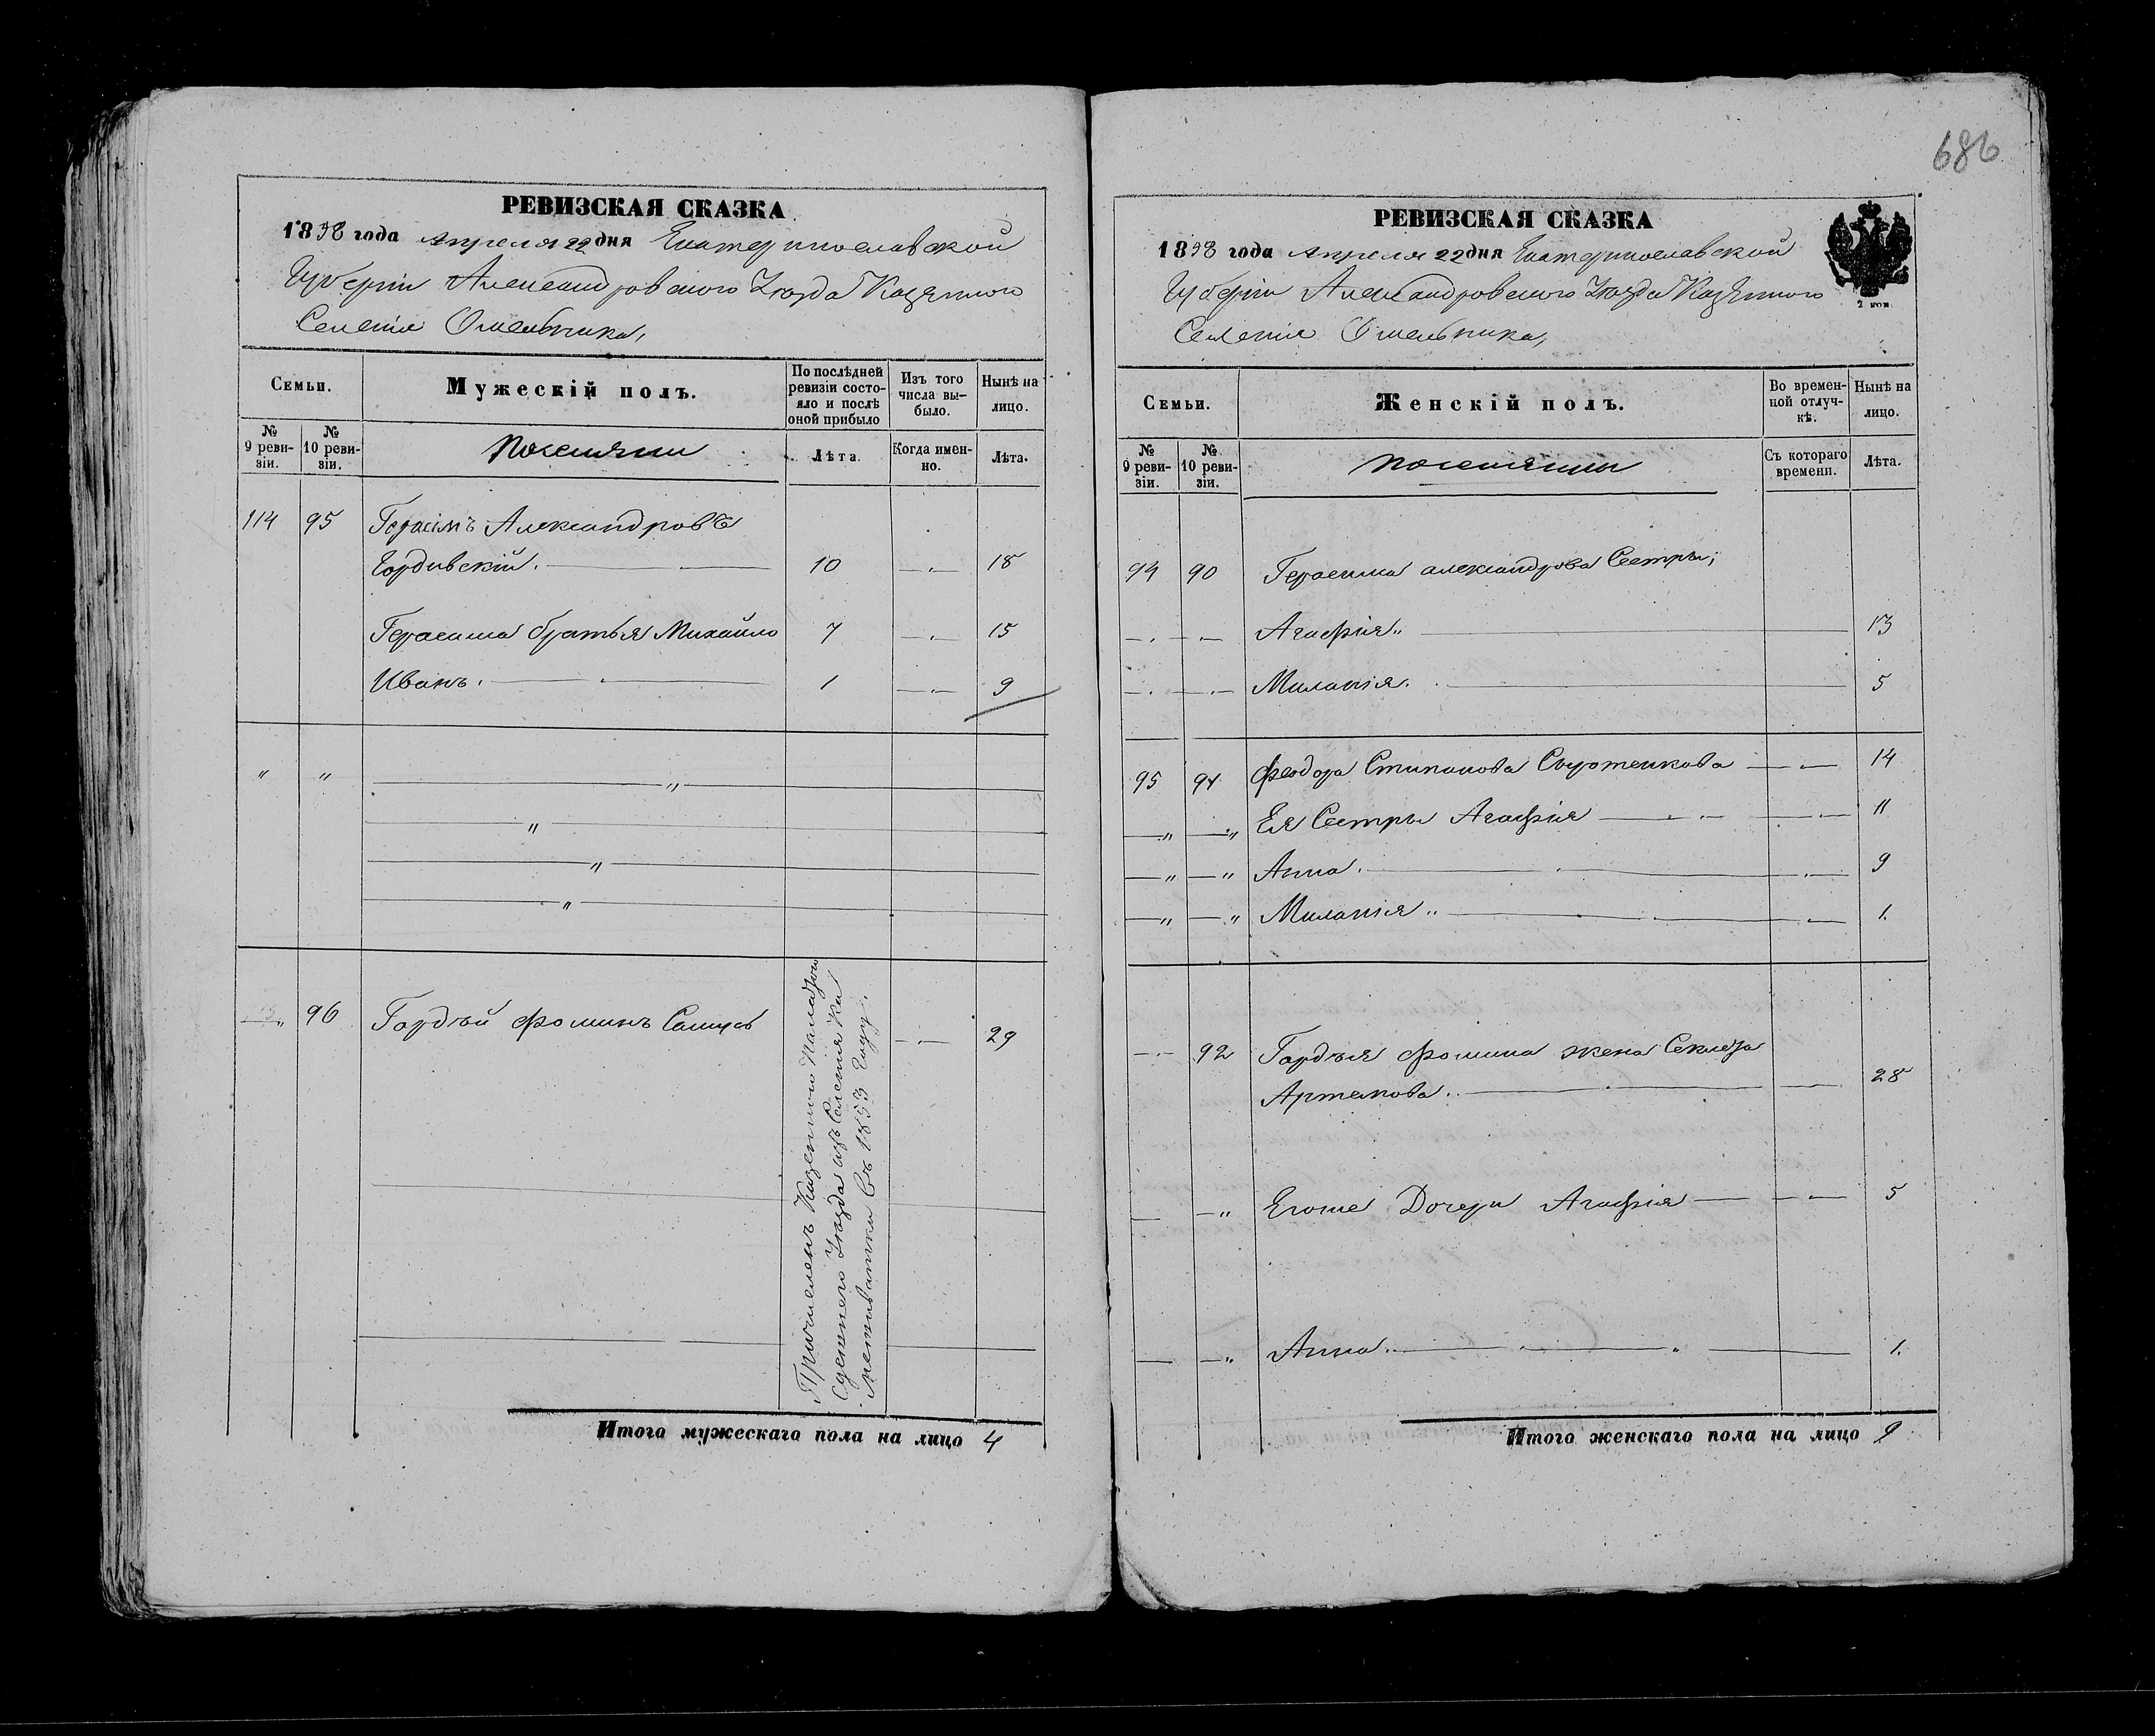 РЕВИЗСКАЯ СКАЗКА
1858 года Апреля 22 дня Екатеринославской
Губерніи Александровскаго Уѣзда Казеннаго
Селенія Омельника,
Семьи.
Мужескій полъ.
По послѣдней ревизіи состояло и послѣ оной прибыло
Изъ того числа выбыло.
Нынѣ на лицо.
№ 9 ревизіи.
№ 10 ревизіи.
Поселяни
Лѣта.
Когда именно.
Лѣта.
114 95 Герасімъ Александровъ
Гордивскій. 10 18
Герасима братья Михайло 7 15
Иванъ. 1 9
" " "
"
"
"
" 96 Гордѣй Фоминъ 29
Причисленъ Казенною Палатою
Уѣзда изъ Селенія
Съ 1853 Году.
Итого мужескаго пола на лицо 4
686
РЕВИЗСКАЯ СКАЗКА
1858 года Апреля 22 дня Екатеринославской
Губерніи Александровскаго Уѣзда Казеннаго
Селенія Омельника,
2 коп
Семьи.
Женскій полъ.
Во временной отлучкѣ.
Нынѣ на лицо.
№ 9 ревизіи.
№ 10 ревизіи.
поселянки
Съ котораго времени.
Лѣта.
94 90 Герасима александрова Сестры;
Агафія.. 13
Миланія. 5
95 91 Феодора Стипанова 14
" " Ея Сестры Агафія 11
" " Анна. 9
" " Миланія.. 1.
92 Гордѣя Фомина жена
Артемова.. 28
" Егоже Дочери Агафія 5
" Анна. 1.
Итого женскаго пола на лицо 9